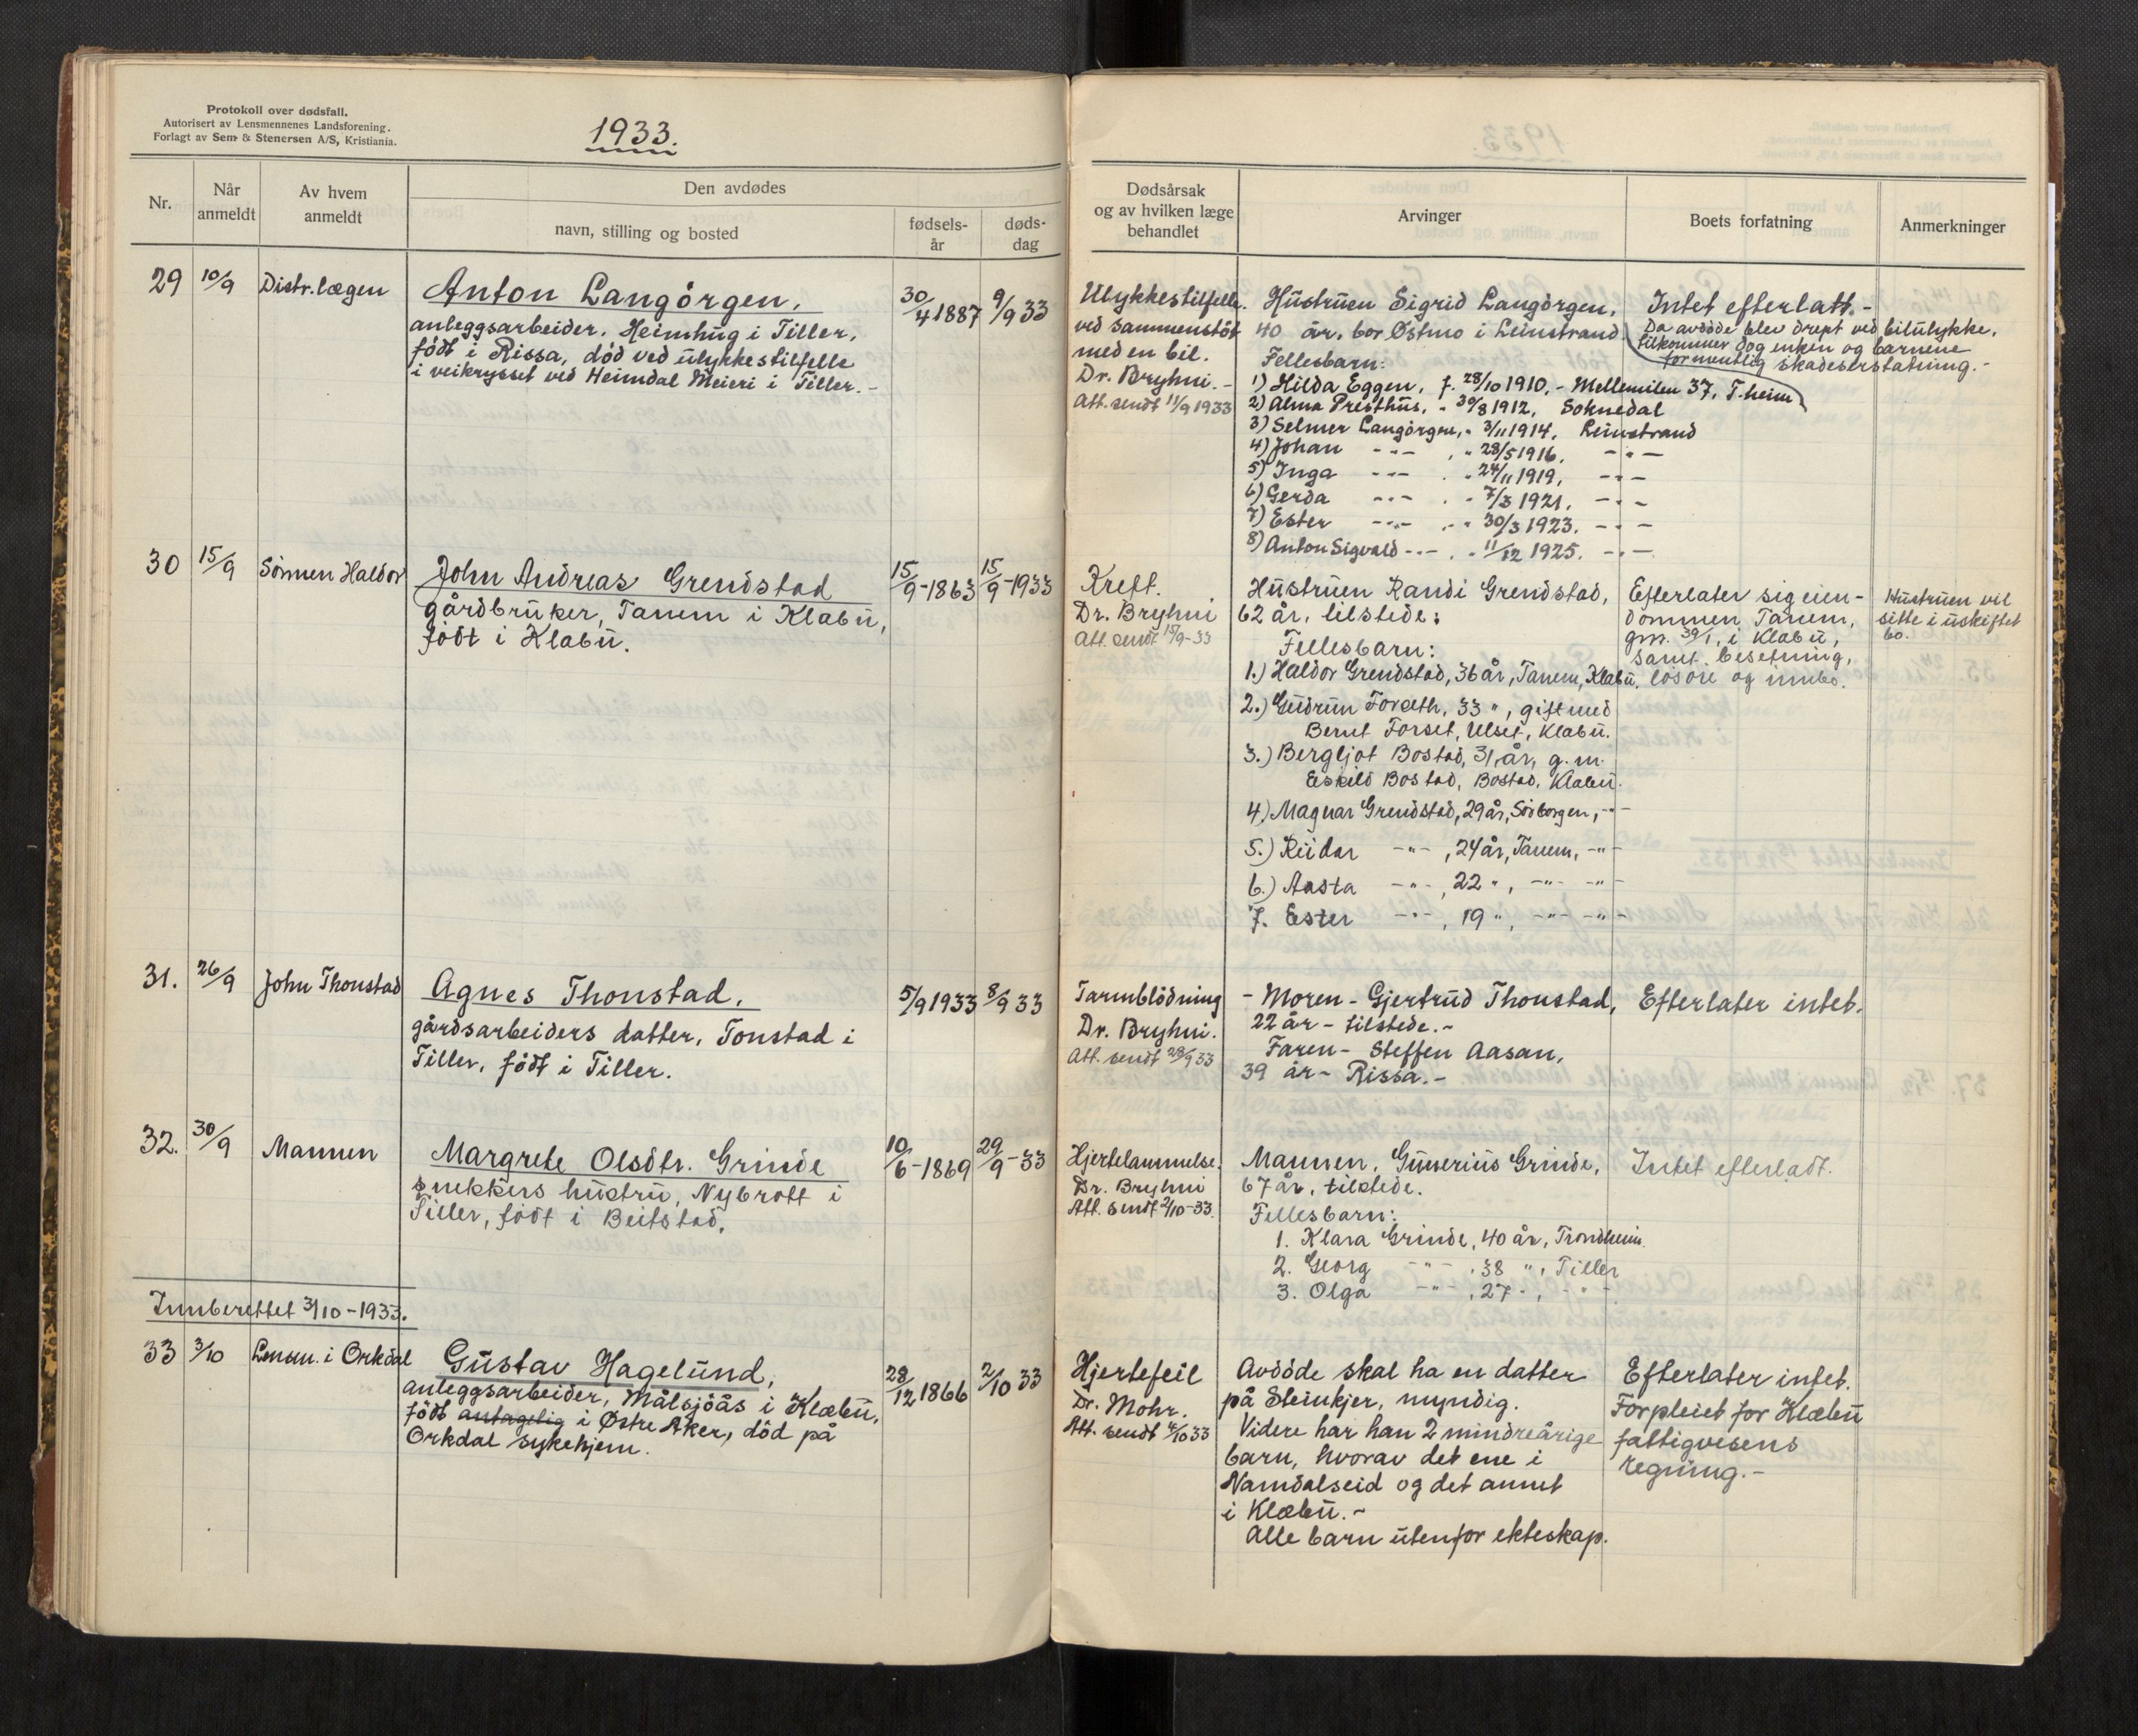 Protokoll over dødsfall.
Autorisert av Lensmennenes Landsforening.
Forlagt av Sem & Stenersen A/S, Kristiania.
1933.
Nr.
Når
anmeldt
Av hvem
anmeldt
Den avdødes
navn, stilling og bosted
fødsels-
år
døds-
dag
Dødsårsak
og av hvilken læge
behandlet
Arvinger
Boets forfatning
Anmerkninger
29
10/9
Distr.lægen
Anton Langörgen,
anleggsarbeider. Heimhug i Tiller,
födt i Rissa, död ved ulykkestilfelle
i veikrysset ved Heimdal Meieri i Tiller. -
30/4 1887
9/9 33
Ulykkestilfelle
ved sammenstöt
med en bil.
Dr. Bryhni. -
Att. sendt 11/9 1933
Hustruen Sigrid Langörgen,
40 år, bor Østmo i Leinstrand
Fellesbarn:
1) Hilda Eggen, f. 28/10 1910. - Mellemilen 37, T.heim
2) Alma Presthus, " 30/8 1912, Soknedal
3) Selmer Langörgen, " 3/11 1914, Leinstrand
4) Johan -"- , " 28/5 1916, -"-
5) Inga -"- , " 24/11 1919, -"-
6) Gerda -"- , " 7/3 1921, -"-
7) Ester -"- , " 30/3 1923. -"-
8) Anton Sigvald -"- , " 11/12 1925. -"-
Intet efterlatt. -
Da avdöde blev drept ved bilulykke,
tilkommer dog enken og barnene
formentlig skadeserstatning. -
30
15/9
Sönnen Haldor
John Andreas Grendstad
gårdbruker, Tanem i Klabu,
födt i Klabu.
15/9-1863
15/9-1933
Kreft.
Dr. Bryhni
Att. sendt 15/9-33
Hustruen Randi Grendstad,
62 år, tilstede:
Fellesbarn:
1.) Haldor Grendstad, 36 år, Tanem, Klabu.
2.) Gudrun Forseth, 33 ", gift med
Bernt Forset, Ulset, Klabu.
3.) Bergljot Bostad, 31 år, g. m.
Eskild Bostad, Bostad, Klabu.
4.) Magnar Grendstad, 29 år, Sörborgen, -"-
5.) Reidar -"- , 24 år, Tanem, -"-
6.) Aasta -"- , 22 ", -"- -"-
7. Ester -"- , 19 ", -"- -"-
Efterlater sig eien-
dommen Tanem,
gnr. 39/1, i Klabu,
samt besetning,
lösöre og innbo.
Hustruen vil
sitte i uskiftet
bo.
31.
26/9
John Thonstad
Agnes Thonstad,
gårdsarbeiders datter, Tonstad i
Tiller, födt i Tiller.
5/9 1933
8/9 33
Tarmblödning
Dr. Bryhni.
Att. sendt 28/9 33
- Moren - Gjertrud Thonstad,
22 år - tilstede. -
Faren - Steffen Aasan,
39 år - Rissa. -
Efterlater intet.
32.
30/9
Mannen
Margrete Olsdtr. Grinde
snekkers hustru, Nybrott i
Tiller, födt i Beitstad.
10/6-1869
29/9-33
Hjertelammelse.
Dr. Bryhni
Att. sendt 2/10-33.
Mannen, Gunerius Grinde,
67 år, tilstede.
Fellesbarn:
1. Klara Grinde, 40 år, Trondheim.
2. Georg -"- , 38 ", Tiller
3. Olga -"- , 27 ", -"-
Intet efterladt.
Innberettet 3/10-1933.
33
3/10
Lensm. i Orkdal
Gustav Hagelund,
anleggsarbeider, Målsjöås i Klæbu,
födt antagelig i Østre Aker, död på
Orkdal sykehjem.
28/12 1866
2/10 33
Hjertefeil
Dr. Mohr.
Att. sendt 4/10 33
Avdöde skal ha en datter
på Steinkjer, myndig.
Videre har han 2 mindreårige
barn, hvorav det ene i
Namdalseid og det annet
i Klæbu. -
Alle barn utenfor ekteskap.
Efterlater intet.
Forpleiet for Klæbu
fattigvesens
regning. -